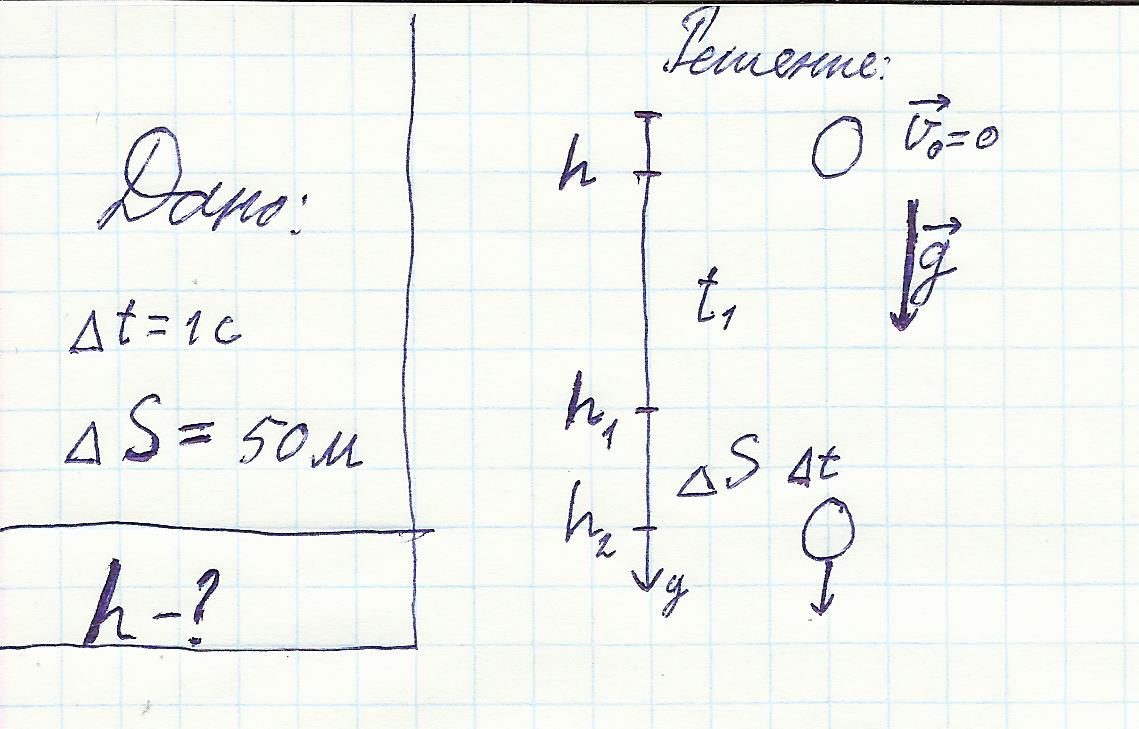 Дано:
Δt = 1с
ΔS = 50м
h - ?
Решение:
v⃗₀ = 0
h
g⃗
t₁
h₁
ΔS Δt
h₂
y